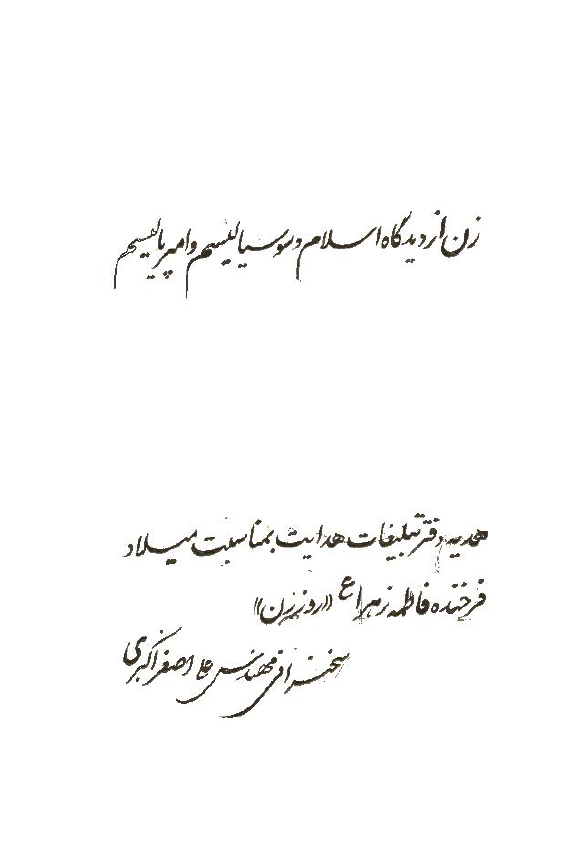 زن از دیدگاه اسلام و سوسیالیسم و امپریالیسم
هدیه دفتر تبلیغات هدایت بمناسبت میلاد
فرخنده فاطمه زهرا ع «روز زن»
سخنرانی مهندس علی اصغر اکبری